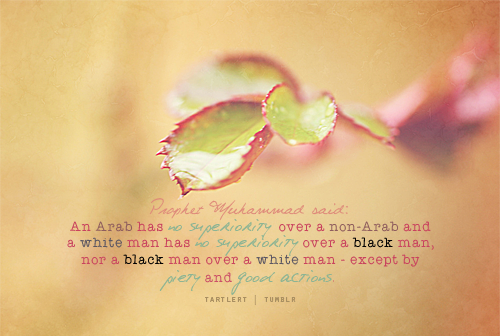 Prophet Muhammad said:
An Arab has no superiority over a non-Arab and
a white man has no superiority over a black man,
nor a black man over a white man - except by
piety and good actions.
TARTLERT | TUMBLR